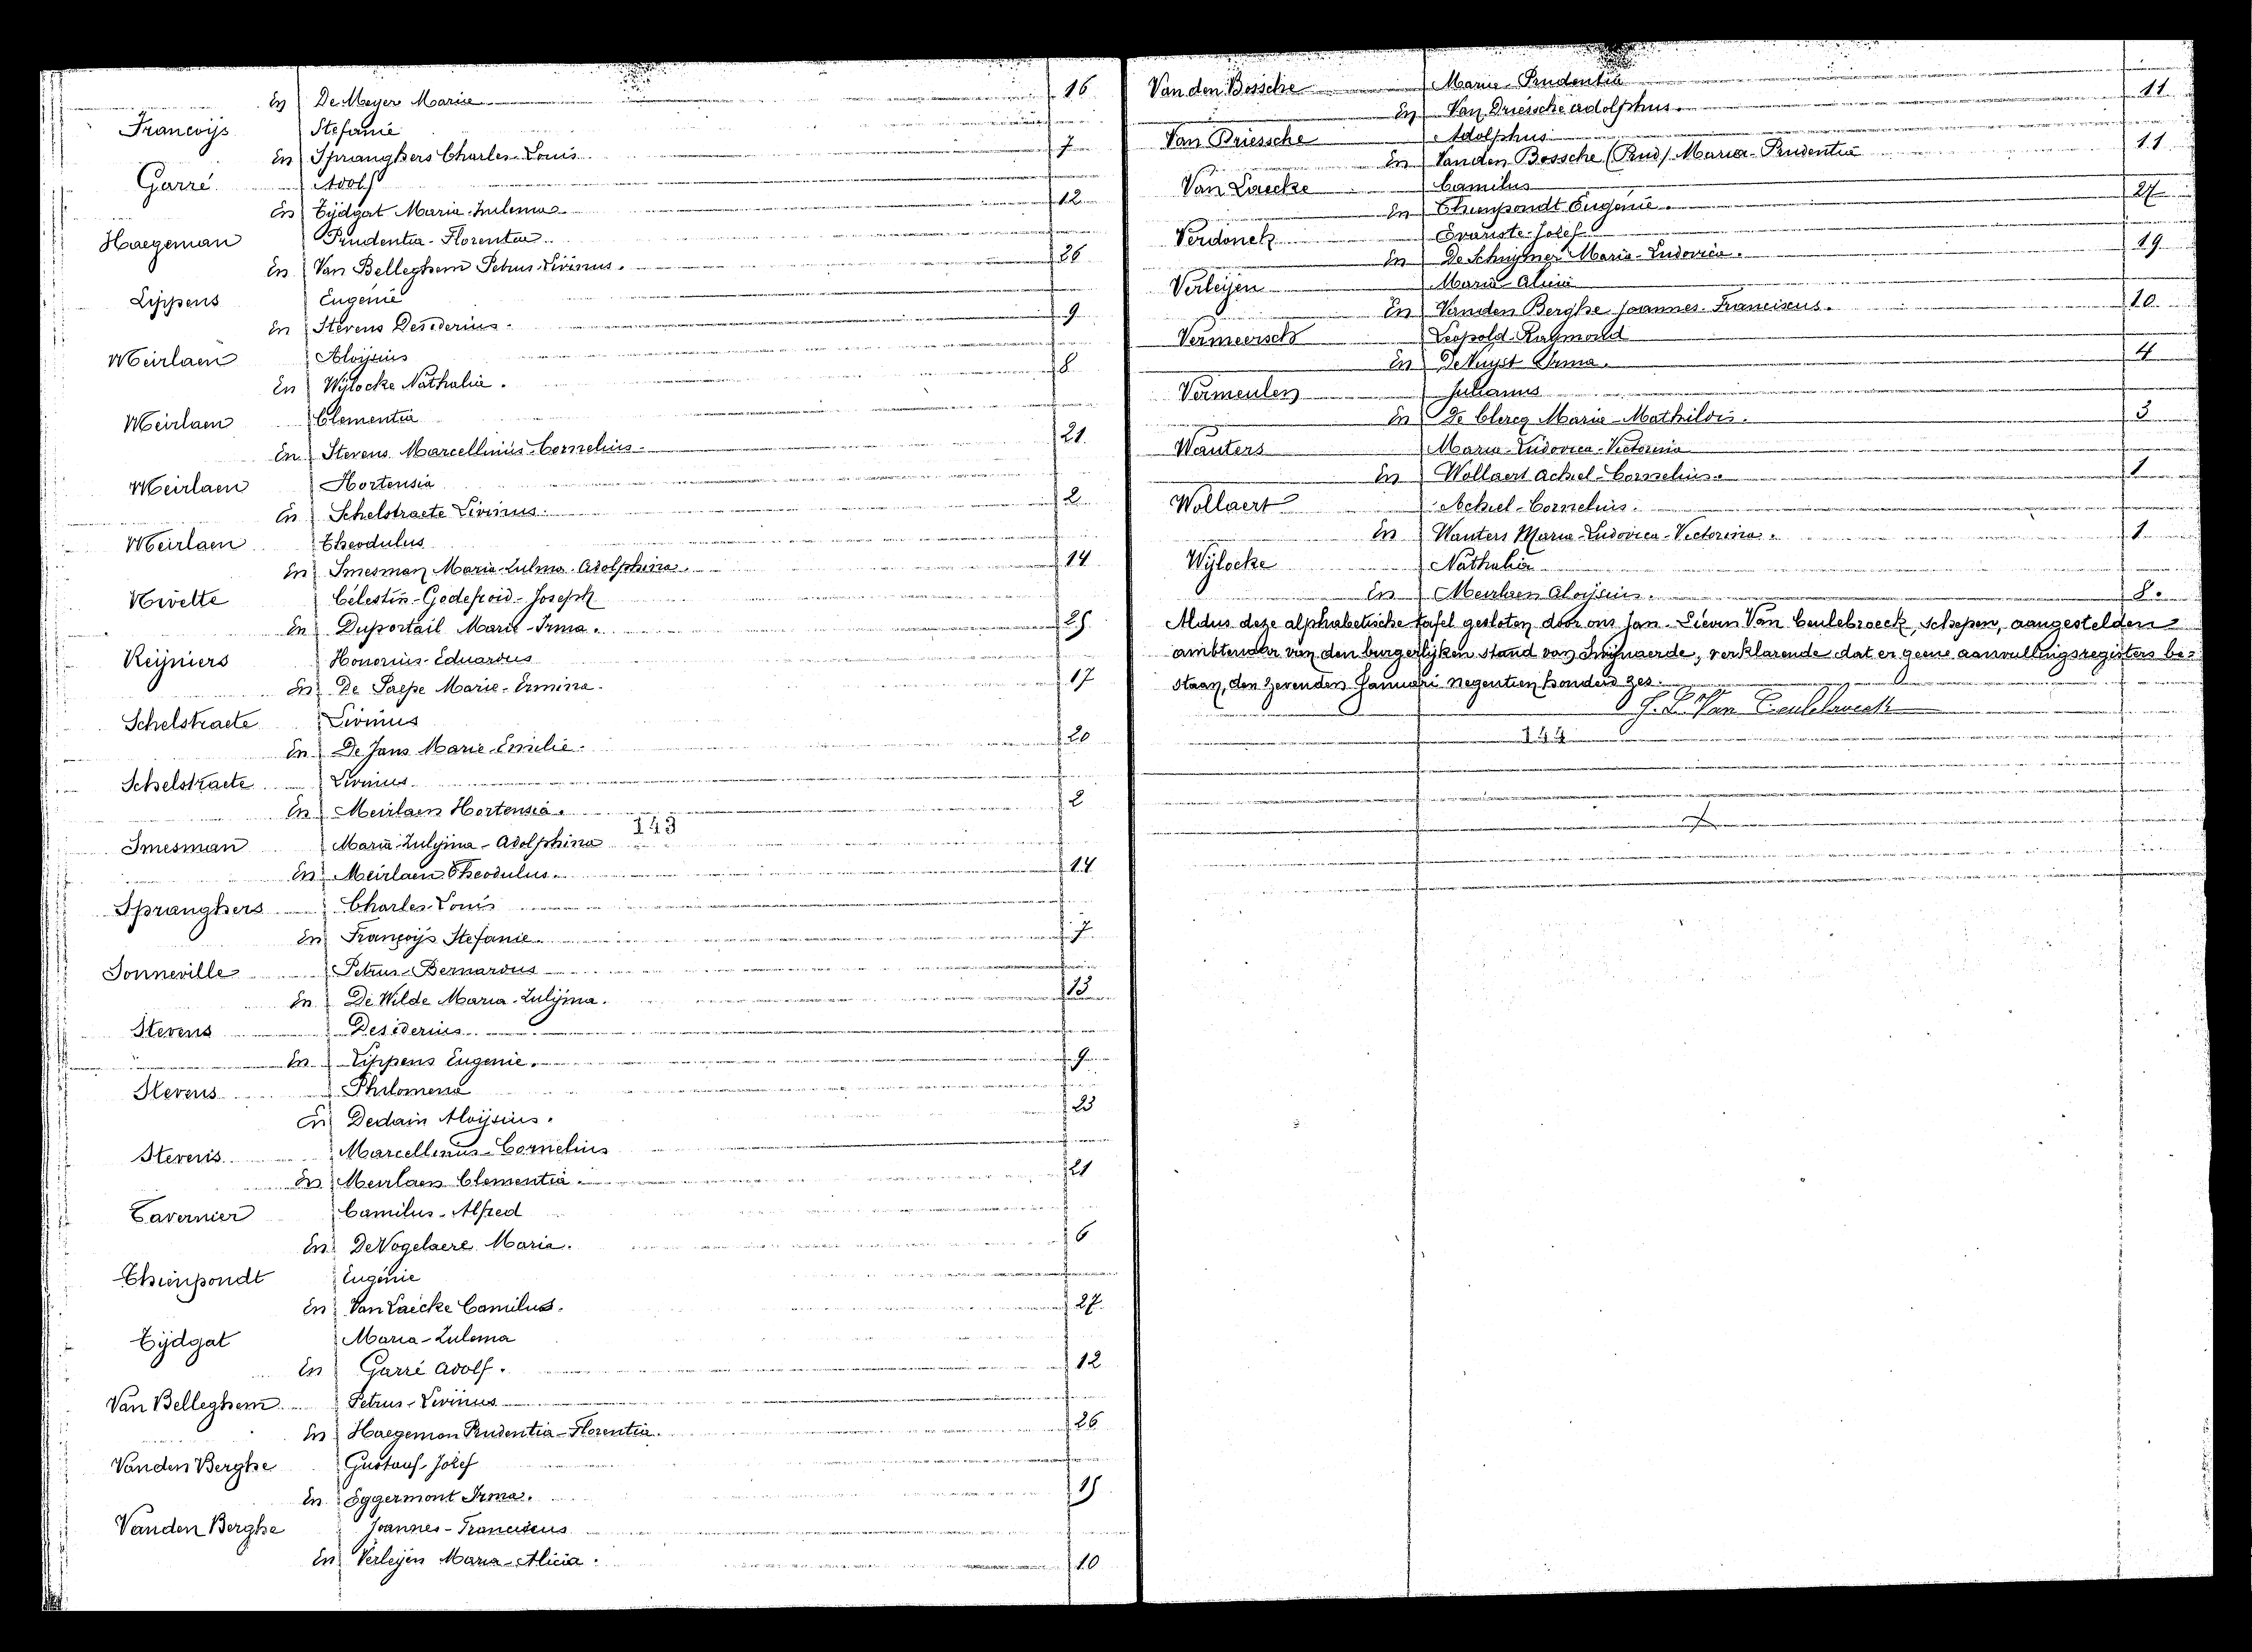 En De Meyer Marie 16
Francoijs Stefanie
En Spranghers Charles-Louis 7
Garré Adolf
En Tijdgat Maria-Zulema 12
Haegeman Prudentia-Florentia
En Van Belleghem Petrus-Livinus. 26
Lippens Eugenie
En Stevens Desiderius. 9
Meirlaen Aloijsius
En Wijlocke Nathalia. 8
Meirlaen Clementia
En Stevens Marcellinus-Cornelius 21
Meirlaen Hortensia
En Schelstraete Livinus. 2
Meirlaen Theodulus
En Smesman Maria-Zulma-Adolphina. 14
Nivelte Célestin-Godefroid-Joseph
En Duportail Marie-Irma. 25
Reijniers Honorius-Eduardus
En De Paepe Marie-Ermina. 17
Schelstraete Livinus
En De Jans Marie-Emilie. 20
Schelstraete Livinus
En Meirlaen Hortensia. 2
143
Smesman Maria-Zulijma-Adolphina
En Meirlaen Theodulus. 14
Spranghers Charles-Louis
En Françoijs Stefanie. 7
Sonneville Petrus-Bernardus
En De Wilde Maria-Zulijma. 13
Stevens Desiderius
En Lippens Eugenie. 9
Stevens Philomena
En Dedain Aloijsius. 23
Stevens Marcellinus-Cornelius
En Meirlaen Clementia. 21
Tavernier Camilus-Alfred
En De Vogelaere Maria. 6
Thienpondt Eugénie
En Van Laecke Camilus. 27
Tijdgat Maria-Zulema
En Garré Adolf. 12
Van Belleghem Petrus-Livinus
En Haegeman Prudentia-Florentia. 26
Vanden Berghe Gustaaf-Jozef
En Eggermont Irma. 15
Vanden Berghe Joannes-Franciscus
En Verleijen Maria-Alicia. 10
Van den Bossche Maria-Prudentia
En Van Driessche Adolphus. 11
Van Driessche Adolphus
En Vanden Bossche (Prud) Maria-Prudentia 11
Van Laecke Camilus
En Thienpondt Eugénie. 27
Verdonck Evariste-Jozef
En De Schrijver Maria-Ludovica. 19
Verleijen Maria-Alicia
En Vanden Berghe Joannes-Franciscus. 10
Vermeersch Leopold-Raymond
En De Nuyst Irma. 4
Vermeulen Julianus
En De Clercq Maria-Mathildis. 3
Wauters Maria-Ludovica-Victorina
En Wollaert Achiel-Cornelius. 1
Wollaert Achiel-Cornelius.
En Wauters Maria-Ludovica-Victorina. 1
Wijlocke Nathalia
En Meirlaen Aloijsius. 8.
Aldus deze alphabetische tafel gesloten door ons Jan-Lievin Van Ceulebroeck, schepen, aangestelden
ambtenaar van den burgerlijken stand van Swijnaerde, verklarende dat er geene aanvullingsregisters be-
staan, den zevenden Januari negentien honderd zes.
J. L. Van Ceulebroeck
144